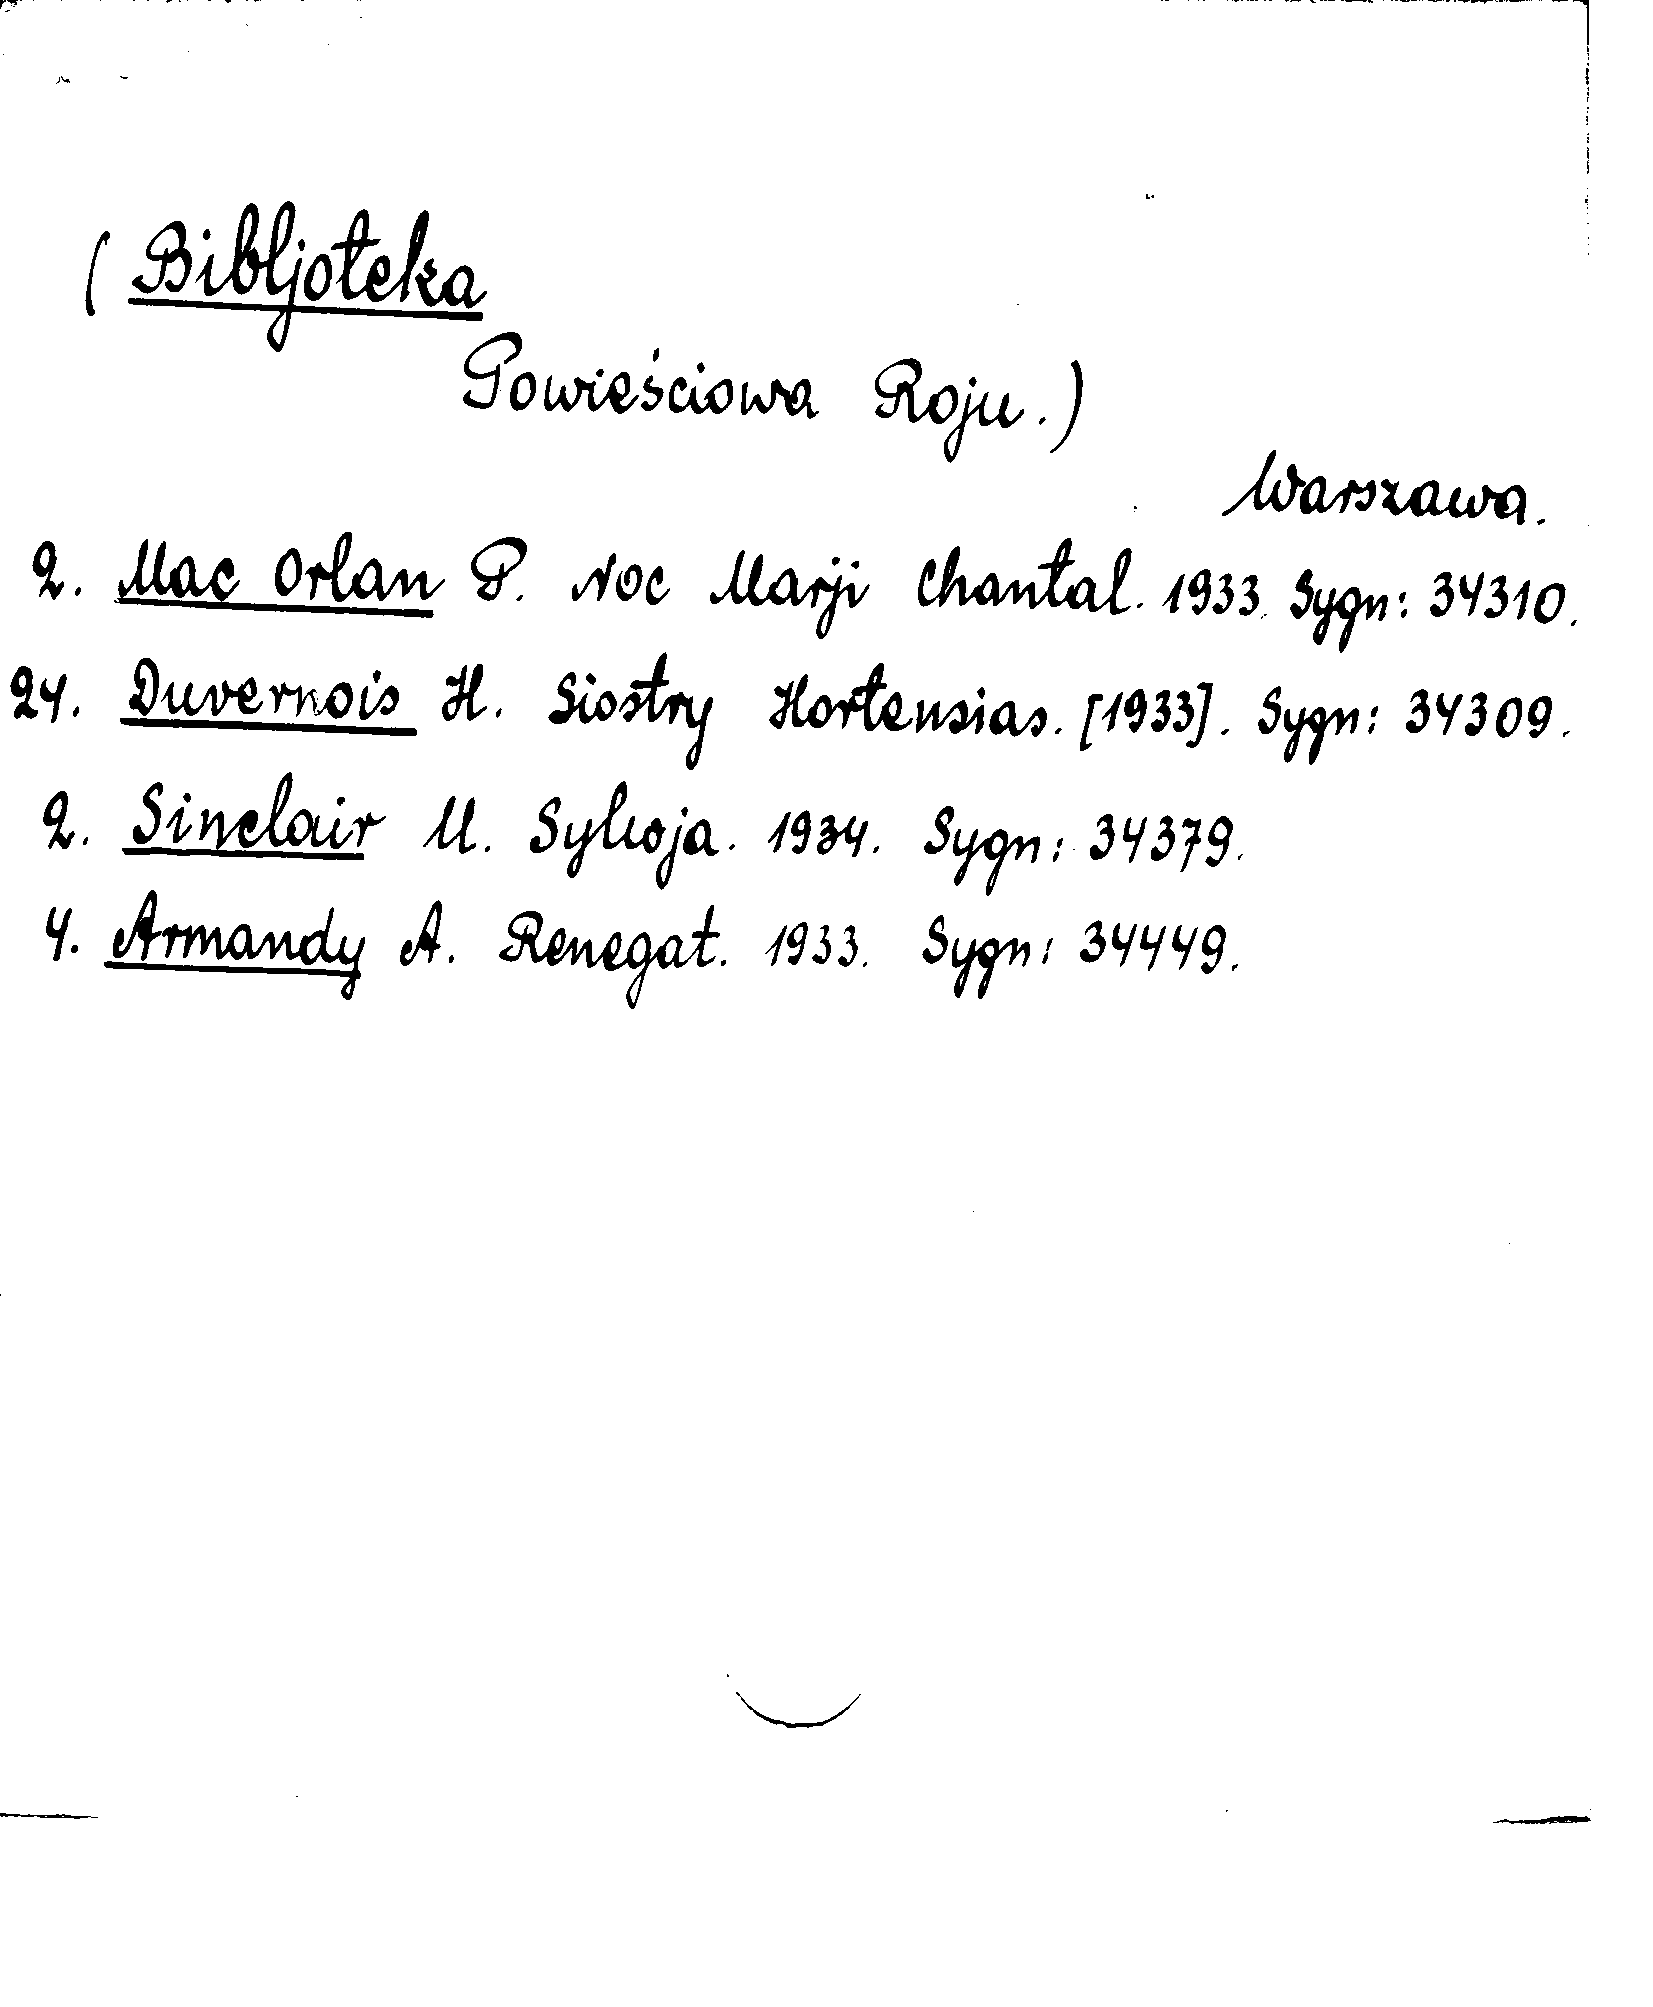 ( Bibljoteka
Powieściowa Roju.)
Warszawa.
2. Mac Orlan P. Noc Marji Chantal. 1933. Sygn: 34310.
24. Duvernois H. Siostry Hortensias. [1933]. Sygn: 34309.
2. Sinclair U. Sylwja. 1934. Sygn: 34379.
4. Armandy A. Renegat. 1933. Sygn: 34449.